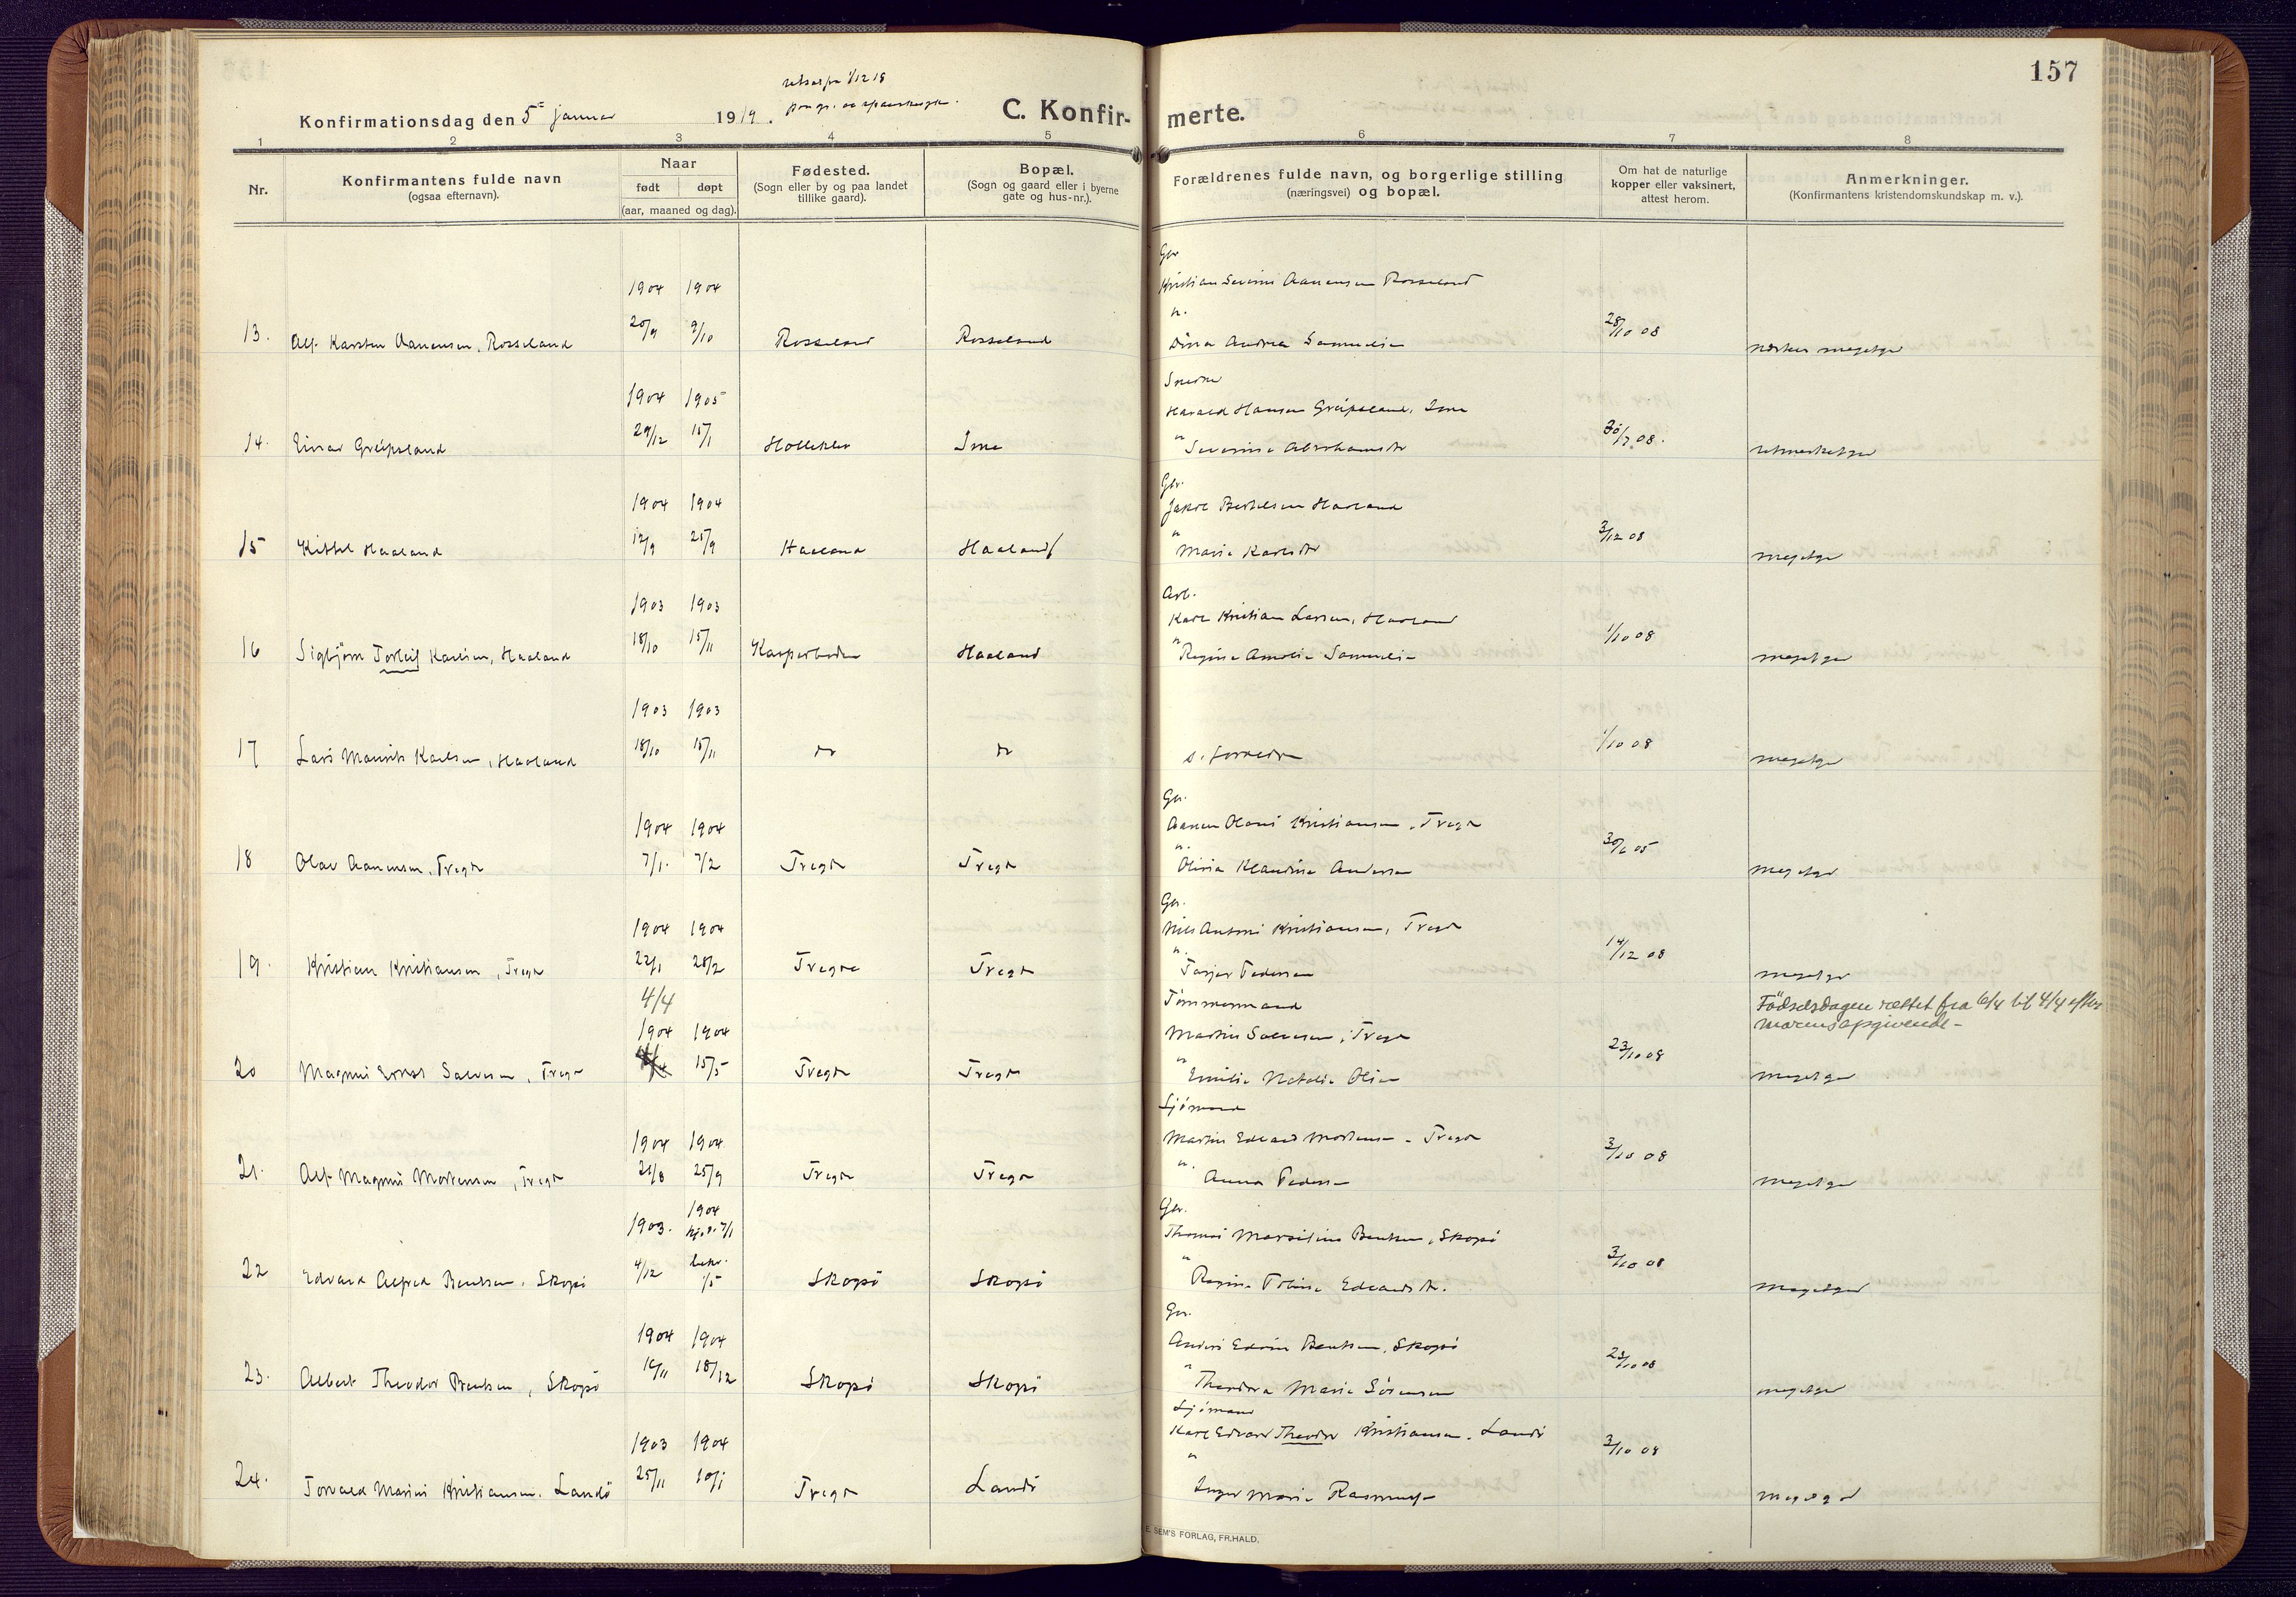 157
utsat fra 1/12 18
Konfirmationsdag den 5 januar 1919.
C. Konfir- merte.
1 2 3 4 5 6 7 8
Nr.
Konfirmantens fulde navn
(ogsaa efternavn).
Naar
født døpt
(aar, maaned og dag).
Fødested.
(Sogn eller by og paa landet
tillike gaard).
Bopæl.
(Sogn og gaard eller i byerne
gate og hus-nr.).
Forældrenes fulde navn, og borgerlige stilling
(næringsvei) og bopæl.
Om hat de naturlige
kopper eller vaksinert,
attest herom.
Anmerkninger.
(Konfirmantens kristendomskundskap m. v.).
Gbr
1904 1904 Kristian Severin Aanensen Rosseland
n.
13. Alf Karsten Aanensen, Rosseland 20/9 9/10 Rosseland Rosseland Dina Andrea Samuelsen 28/10 08 meget gr
Snedker
1904 1905 Harald Hansen Greipsland, Ime
14. Einar Greipsland 29/12 15/1 Ime " Severine Abrahamsdtr 30/7 08. utmerket gr
Gbr.
1904 1904 Jakob Bertelsen Haaland
15 Kittel Haaland 12/9 25/9 Haaland Haaland " Maria Karlsdtr 3/12 08 meget gr
Arb.
1903 1903 Karl Kristian Larsen, Haaland
16 Sigbjørn Torleif Karlsen, Haaland 18/10 15/11 Haaland " Regine Amalie Samuelsen 1/10 08 meget gr
1903 1903
17 Lars Maurits Karlsen, Haaland 18/10 15/11 do do s. foreldre 1/10 08 meget gr
Gbr.
1904 1904 Aanen Olaus Kristiansen, Tregde
18 Olav Aanensen, Tregde 7/1. 7/2 Tregde Tregde " Olivia Klaudine Andersen 30/6 05 meget gr
Gbr.
1904 1904 Nils Antoni Kristiansen, Tregde
19. Kristian Kristiansen, Tregde 22/1 28/2 Tregde Tregde " Tasjer Pedersen 14/12 08 meget gr
4/4 Tømmermand Fødselsdagen rettet fra 6/4 til 4/4 efter
morens opgivende -
1904 1904 Martin Salvesen, Tregde
20 Magnus Ernst Salvesen, Tregde 15/5 Tregde Tregde " Emilie Natalie Olsen 23/10 08 meget gr
Sjømand
1904 1904 Martin Edvard Mortensen - Tregde
21. Alf Magnus Mortensen, Tregde 21/8 25/9 Tregde Tregde " Anna Pedersen 3/10 08 meget gr
Gbr.
1903. 1904 hj.d. 7/1 Thomas Marselius Bentsen, Skogsø
22 Edvard Alfred Bentsen, Skogsø 4/12 bekr. 1/5 Skogsø Skogsø " Regine Tobine Edvardsdtr. 3/10 08 meget gr
Gbr.
1904 1904 Anders Edvin Bentsen, Skogsø
23. Albert Theodor Bentsen, Skogsø 16/11 18/12 Skogsø Skogsø " Theodora Marie Sørensen 23/10 08 meget gr
Sjømand
1903 1904 Karl Edvard Theodor Kristiansen, Landø
24. Torvald Marius Kristiansen, Landø 25/11 10/1 Tregde Landø " Inger Marie Rasmussen 3/10 08 meget gr
E. SEM'S FORLAG, FR.HALD.